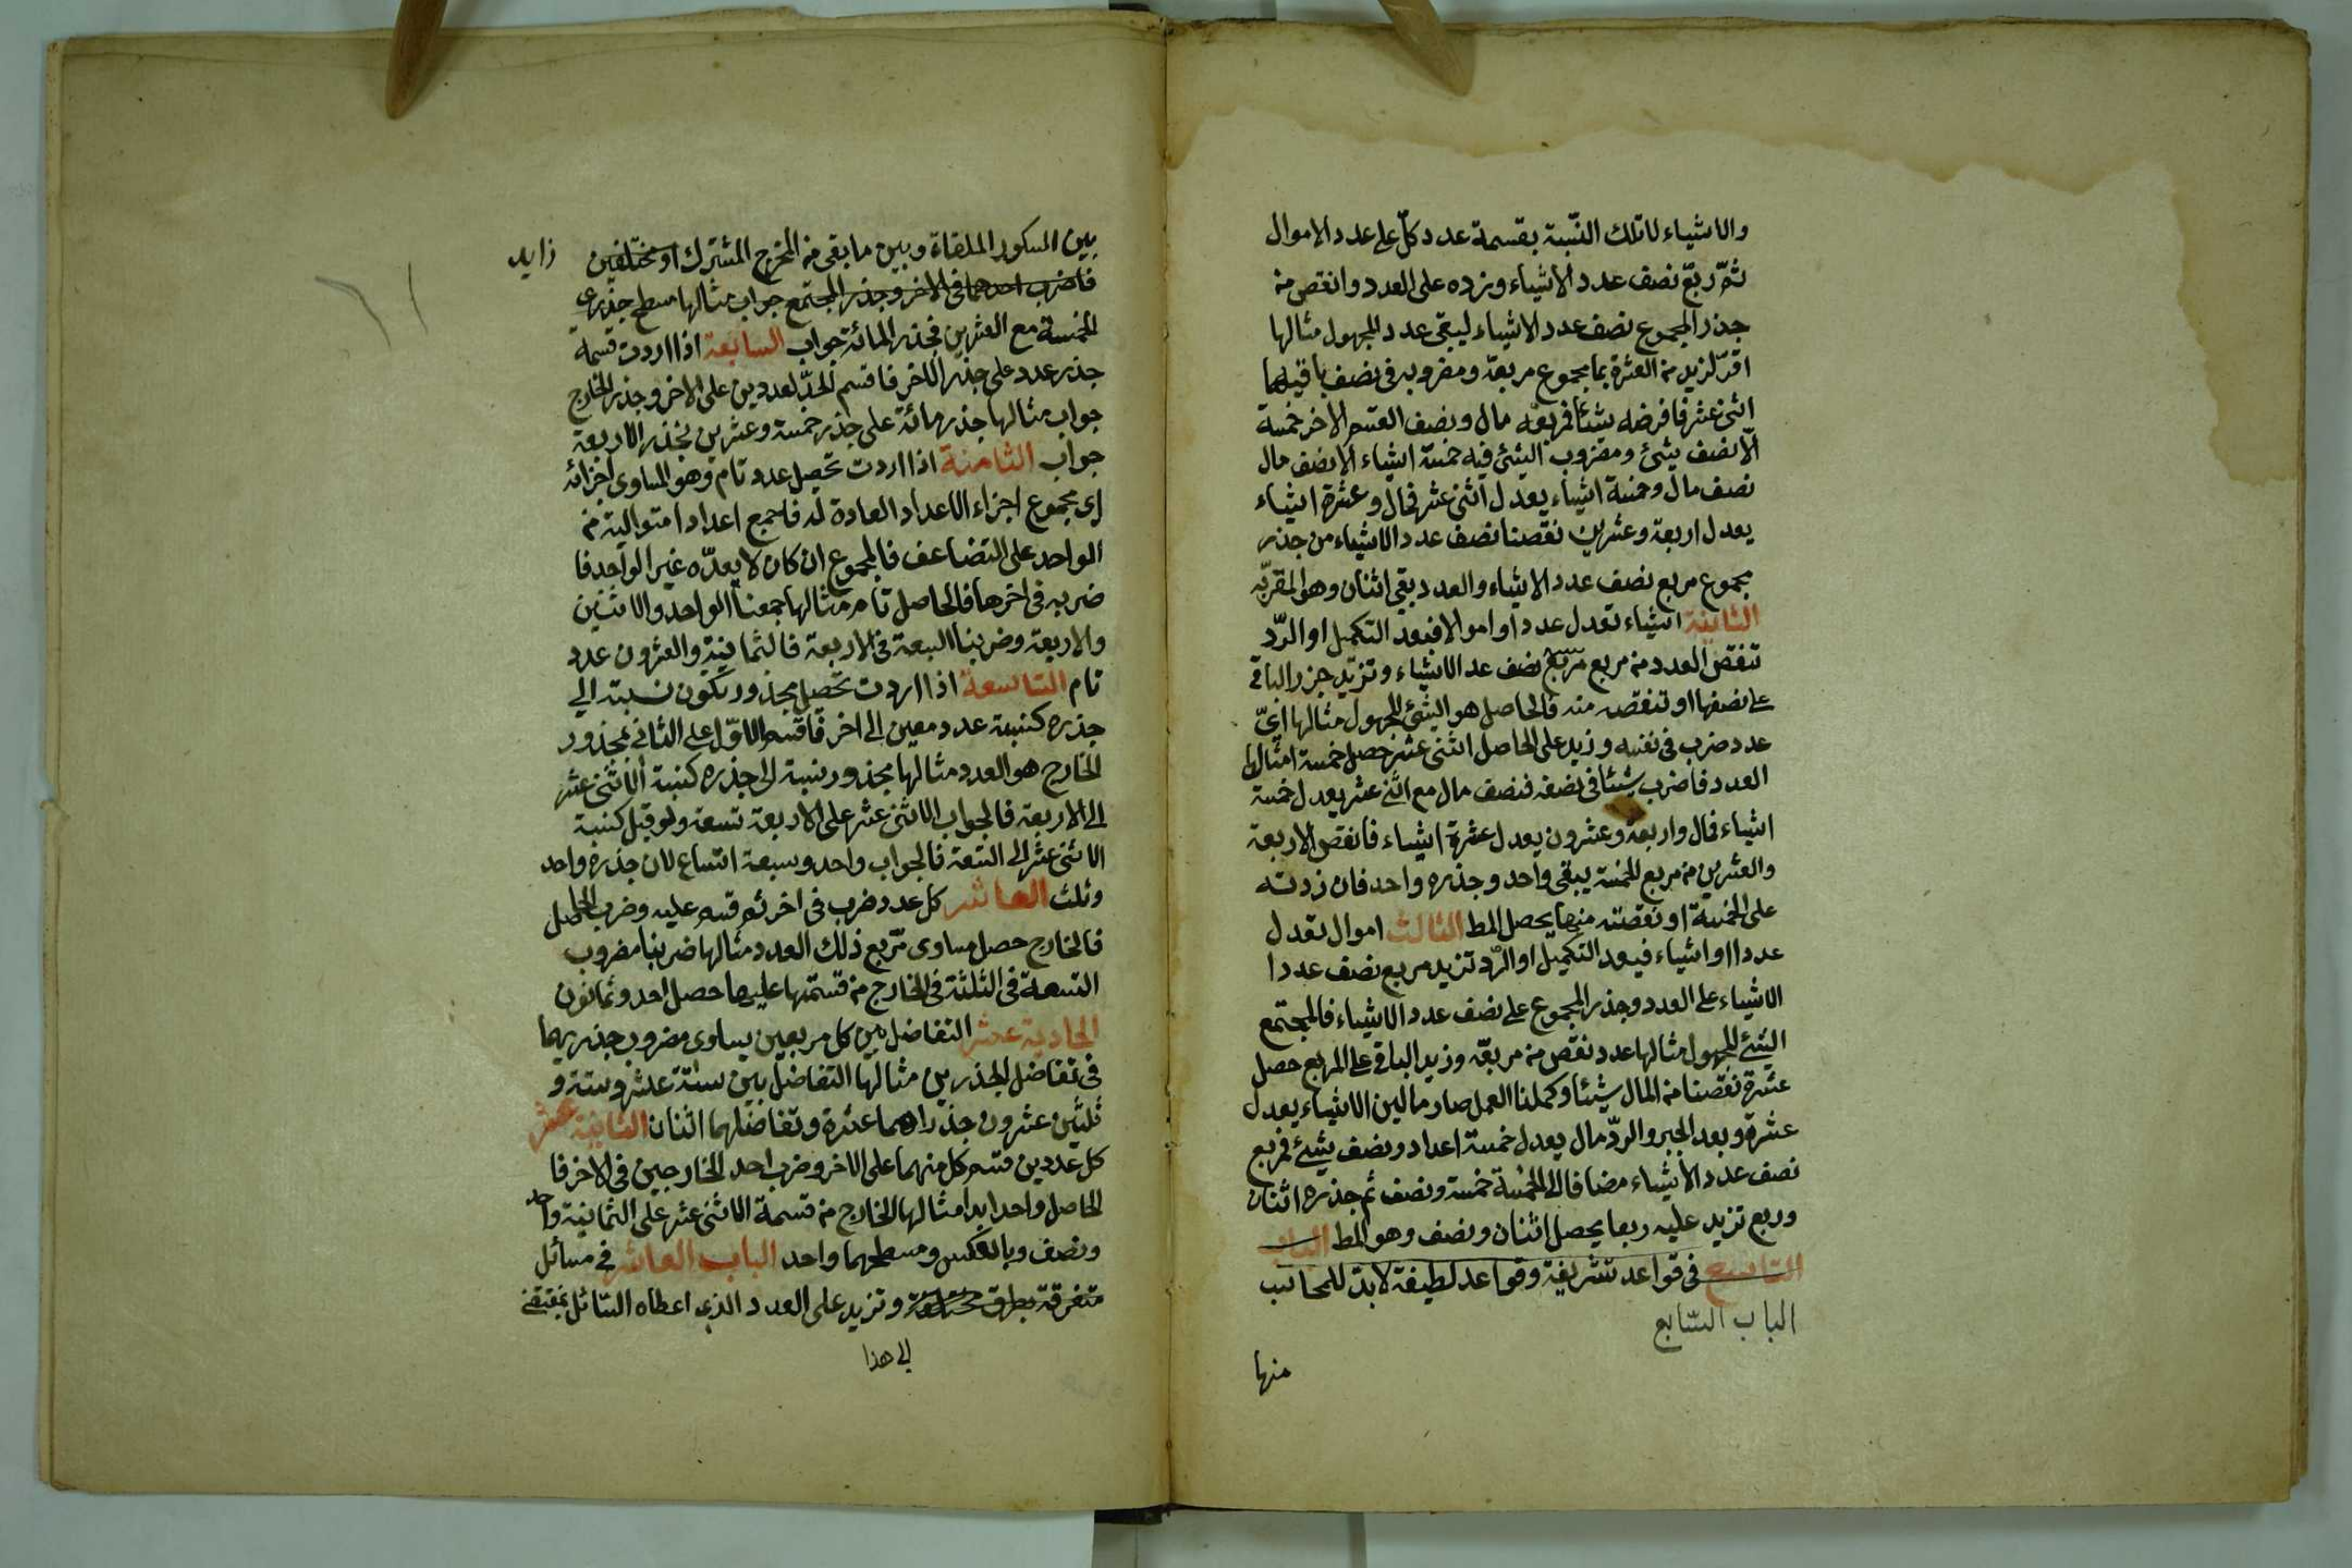 والاشياء لاتلك النسبة بقسمة عدد كلّ على عدد الاموال
ثمّ ربّع نصف عدد الاشياء وزده على العدد وانقص من
جذر المجموع نصف عدد الاشياء ليبقى عدد المجهول مثالها
اقرّ لزيد من العشرة بما مجموع مربعه ومضروبه فى نصف باقيها
اثنى عشر فافرضه شيئا فمربعه مال ونصف القسم الاخر خمسة
الّا نصف شئ ومضروب الشئ فيه خمسة اشياء الا نصف مال
نصف مال وخمسة اشياء يعدل اثنى عشر فمال وعشرة اشياء
يعدل اربعة وعشرين نقصنا نصف عدد الاشياء من جذر
مجموع مربع نصف عدد الاشياء والعدد بقى اثنان وهو المقربّه
الثانية اشياء تعدل عددا واموالا فبعد التكميل او الرّد
تنقص العدد من مربع مربع نصف عد الاشياء وتزيد جزر الباقى
على نصفها او تنقصه منه فالحاصل هو الشئ المجهول مثالها اىّ
عدد ضرب فى نفسه وزيد على الحاصل اثنى عشر حصل خمسة امثال
العدد فاضرب شيئا فى نصفه فنصف مال مع اثنى عشر يعدل خمسة
اشياء فمال واربعة وعشرون يعدل عشرة اشياء فانقص الاربعة
والعشرين من مربع الخمسة يبقى واحد وجذره واحد فان زدته
على الخمسة او نقصته منها يحصل المط الثالث اموال تعدل
عددا او اشياء فبعد التكميل او الرّد تزيد مربع نصف عددا
الاشياء على العدد وجذر المجموع على نصف عدد الاشياء فالمجتمع
الشئ المجهول مثالها عدد نقص من مربعه وزيد الباقى على المربع حصل
عشرة نقصنا من المال شيئا وكملنا العمل صار مالين الا شياء يعدل
عشرة وبعد الجبر والردّ مال يعدل خمسة اعداد ونصف شئ فمربع
نصف عدد الاشياء مضافا الى الخمسة خمسة ونصف ثم جذره اثنان
وربع تزيد عليه ربعا يحصل اثنان ونصف وهو المط الباب
التاسع فى قواعد شريفة وقواعد لطيفة لابدّ للمحاسب
الباب السّابع
منها
بين السكور الملقاة وبين ما بقى من المخرج المشترك او مختلفين زايد
فاضرب احدهما فى الاخر وجذر المجتمع جواب مثالها مسطح جذرى
الخمسة مع العشرين فجذر المائة جواب السابعة اذا اردت قسمة
جذر عدد على جذر الاخر فاقسم احد العددين على الاخر وجذر الخارج
جواب مثالها جذر مائة على جذر خمسة وعشرين فجذر الاربعة
جواب الثامنة اذا اردت تحصيل عدد تام وهو المساوى اجزائه
اى مجموع اجزاء الاعداد العادة له فاجمع اعدادا متوالية من
الواحد على التضاعف فالمجموع ان كان لا يعدّه غير الواحد فا
ضربه فى اخرها فالحاصل تام مثالها جمعنا الواحد والاثنين
والاربعة وضربنا السبعة فى الاربعة فالثمانية والعشرون عدد
تام التاسعة اذا اردت تحصيل مجذور يكون نسبته الى
جذره كنسبة عدد معين الى اخر فاقسم الاوّل على الثانى فمجذور
الخارج هو العدد مثالها مجذور نسبة الى جذره كنسبة الاثنى عشر
الى الاربعة فالجواب الاثنى عشر على الاربعة تسعة ولو قيل كنسبة
الاثنى عشر الى التسعة فالجواب واحد وسبعة اتساع لان جذره واحد
وثلث العاشر كل عدد ضرب فى اخر ثم قسم عليه وضرب الحاصل
فالخارج حصل مساوى مربع ذلك العدد مثالها ضربنا مضروب
التسعة فى الثلثة فى الخارج من قسمتها عليها حصل احد وثمانون
الحادية عشر التفاضل بين كل مربعين يساوى مضروب جذريهما
فى تفاضل الجذرين مثالها التفاضل بين ستة عشر وستة و
ثلثين عشرون جذراهما عشرة وتفاضلهما اثنان الثانية عشر
كل عددين قسم كل منهما على الاخر وضرب احد الخارجين فى الاخر فا
لحاصل واحد ابدا مثالها الخارج من قسمة الاثنى عشر على الثمانية واحد
ونصف وبالعكس ومسطحهما واحد الباب العاشر فى مسائل
متفرقة بطرق مختلفة وتزيد على العدد الذى اعطاه السائل بمقتضى
الى هذا